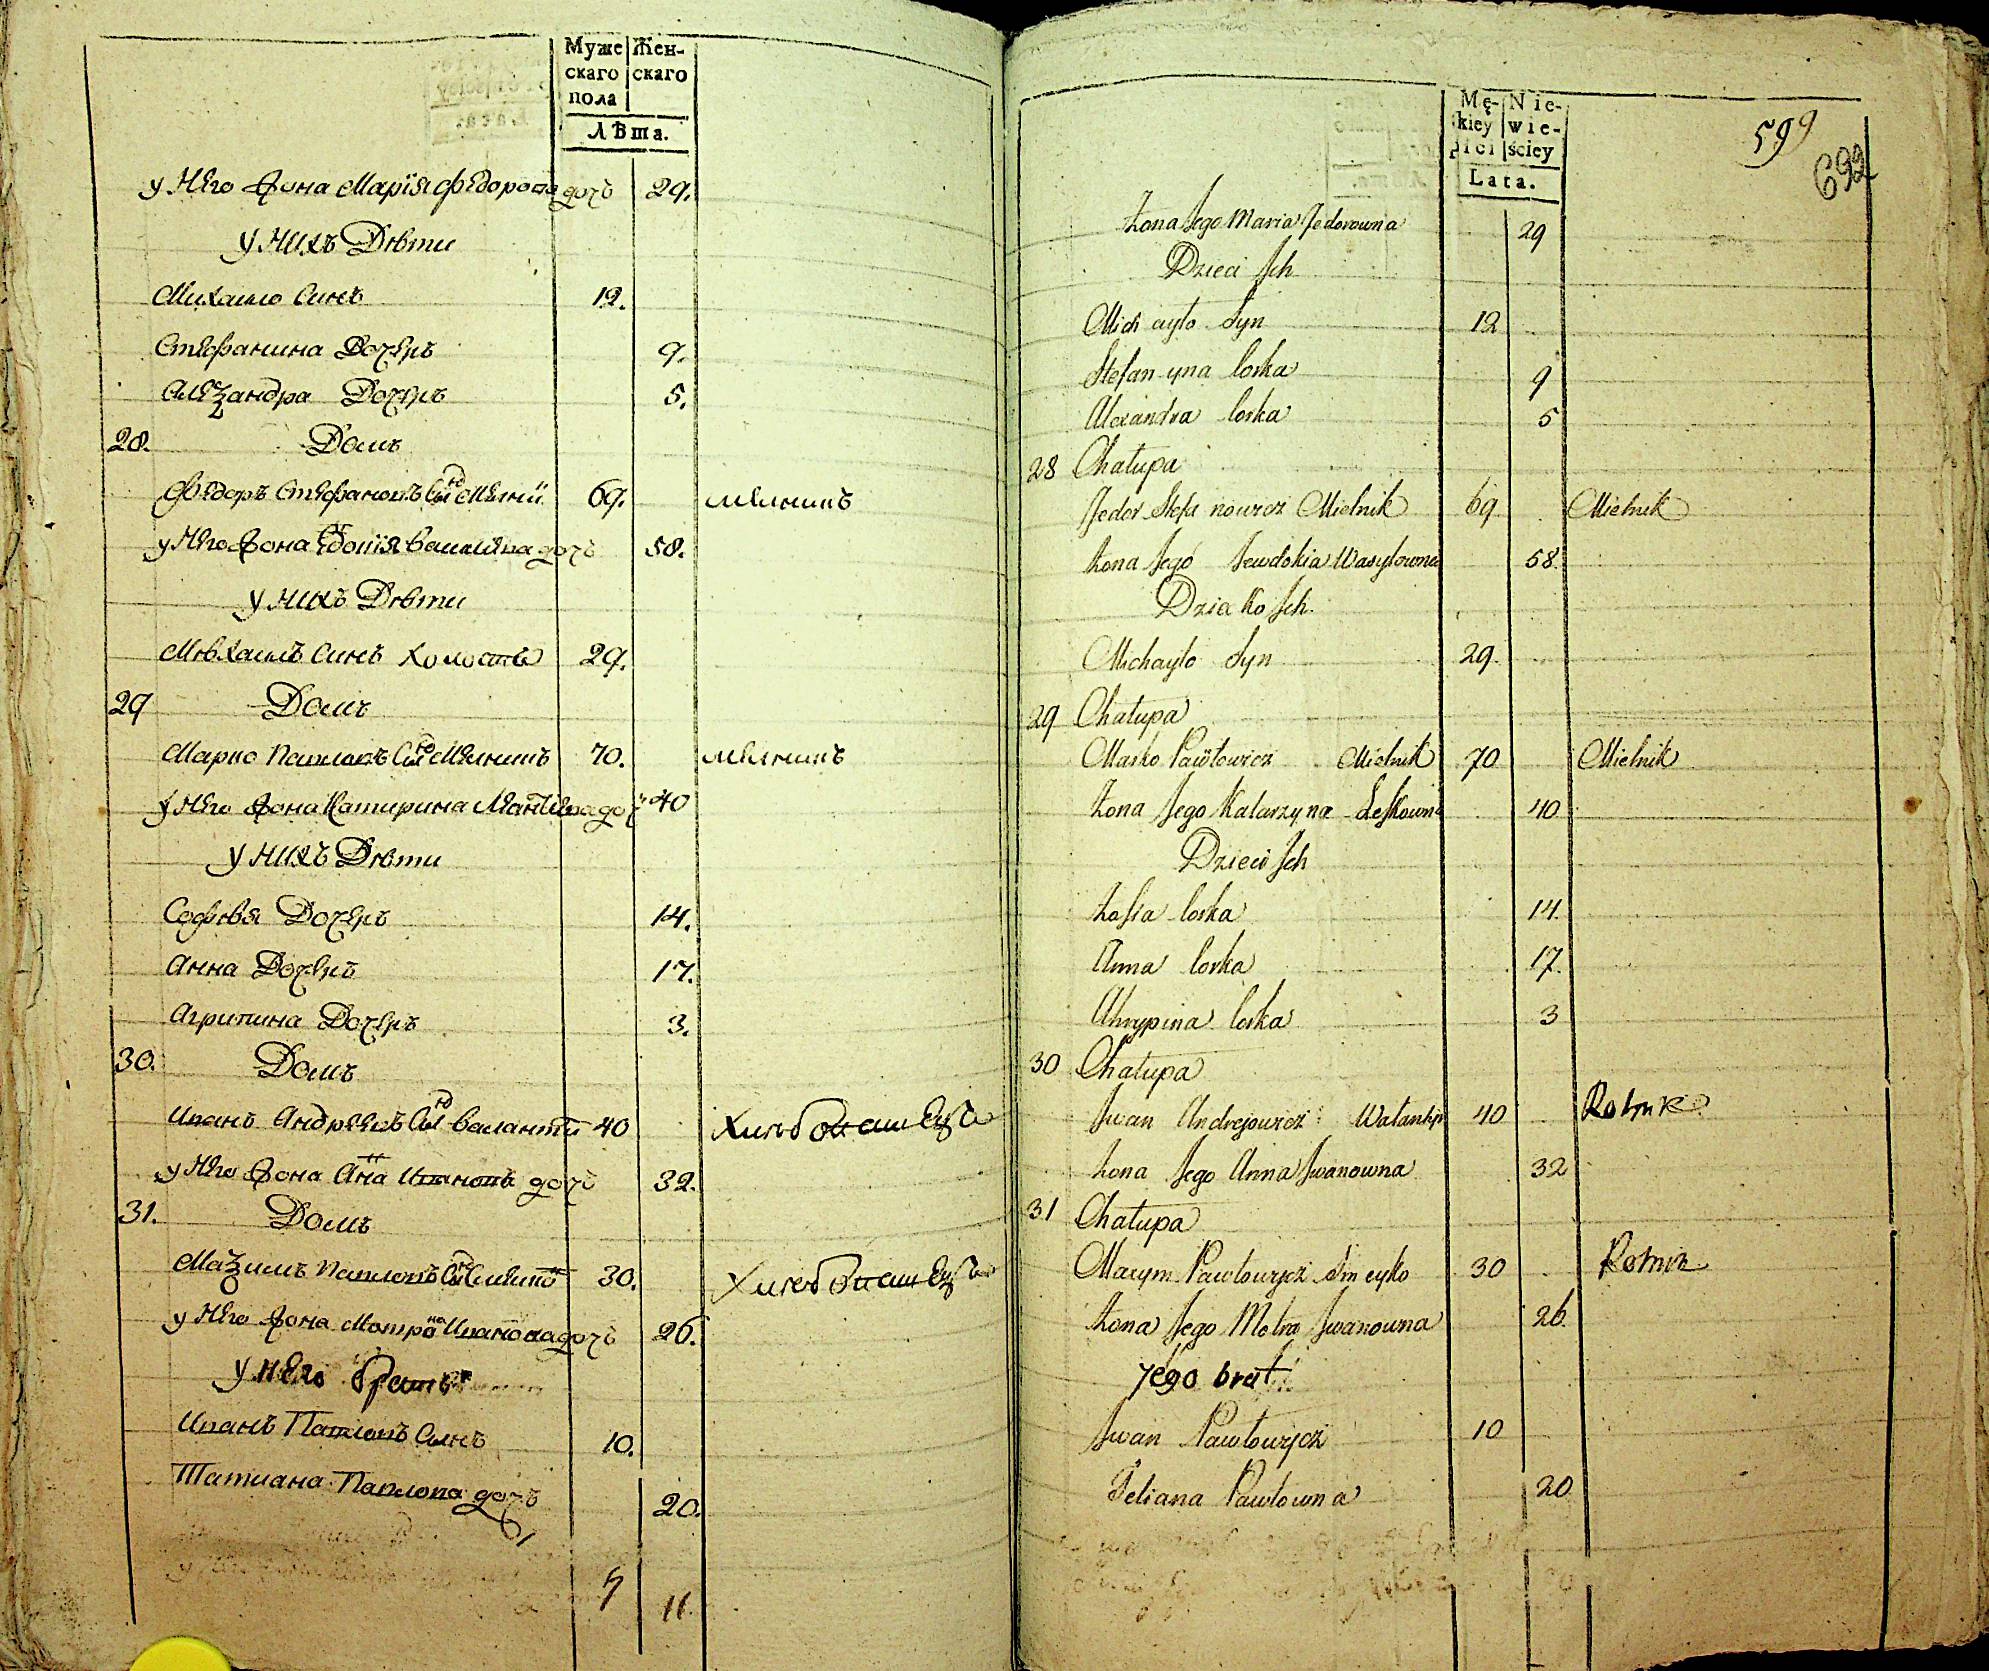 Муже Жен-
скаго скаго
пола
Лѣта.
у Него Жона Мария Федорова дочъ 29.
у Нихъ Дѣти
Михаило Синъ 12.
Стефанина Дочеръ 9.
Алеѯандра Дочеръ 5.
28. Домъ
Федоръ Стефановъ Сынъ 69. мелникъ
у Него Жона Евдокия Василева дочъ 58.
у Нихъ Дѣти
Мѣхаилъ Синъ холостъ 29.
29 Домъ
Марко Павловъ Сынъ Мелникъ 70. мелникъ
у Него Жона Катирина доч 40
у Нихъ Дѣти
Софѣя Дочеръ 14.
Анна Дочеръ 17.
Агрипина Дочеръ 3.
30. Домъ
Иванъ Андреевъ Сынъ 40 Хлебопашецъ
у Него Жона Анна Иванова дочъ 32.
31. Домъ
Маѯимъ Павловъ Сынъ 30. Хлебопашецъ
у Него Жона Мотрона Иванова дочъ 26.
у Него братъ
Иванъ Павловъ Сынъ 10.
Татиана Павлова дочъ 20.
7 11
599
692
Mę- Nie-
kiey wie-
płci ściey
Lata.
Żona Jego Maria Fedorowna 29
Dzieci Jch
Michayło Syn 12
Stefanyna Corka 9
Alexandra Corka 5
28 Chałupa
Fedor Stefanowicz Mielnik 69 Mielnik
Żona Jego Jewdokia Wasylowna 58.
Jch
Michayło Syn 29.
29 Chałupa
Marko Pawłowicz Mielnik 70 Mielnik
Żona Jego Katarzyna 40
Dzieci Jch
Zofia Corka 14.
Anna Corka 17.
Ahrypina Corka 3
30 Chałupa
Jwan Andrejowicz 40 Rolnik
Żona Jego Anna Jwanowna 32
31 Chałupa
Maxym Pawłowicz 30 Rolnik
Żona Jego Motra Jwanowna 26.
Jego brat
Jwan Pawłowicz 10
Teliana Pawłowna 20